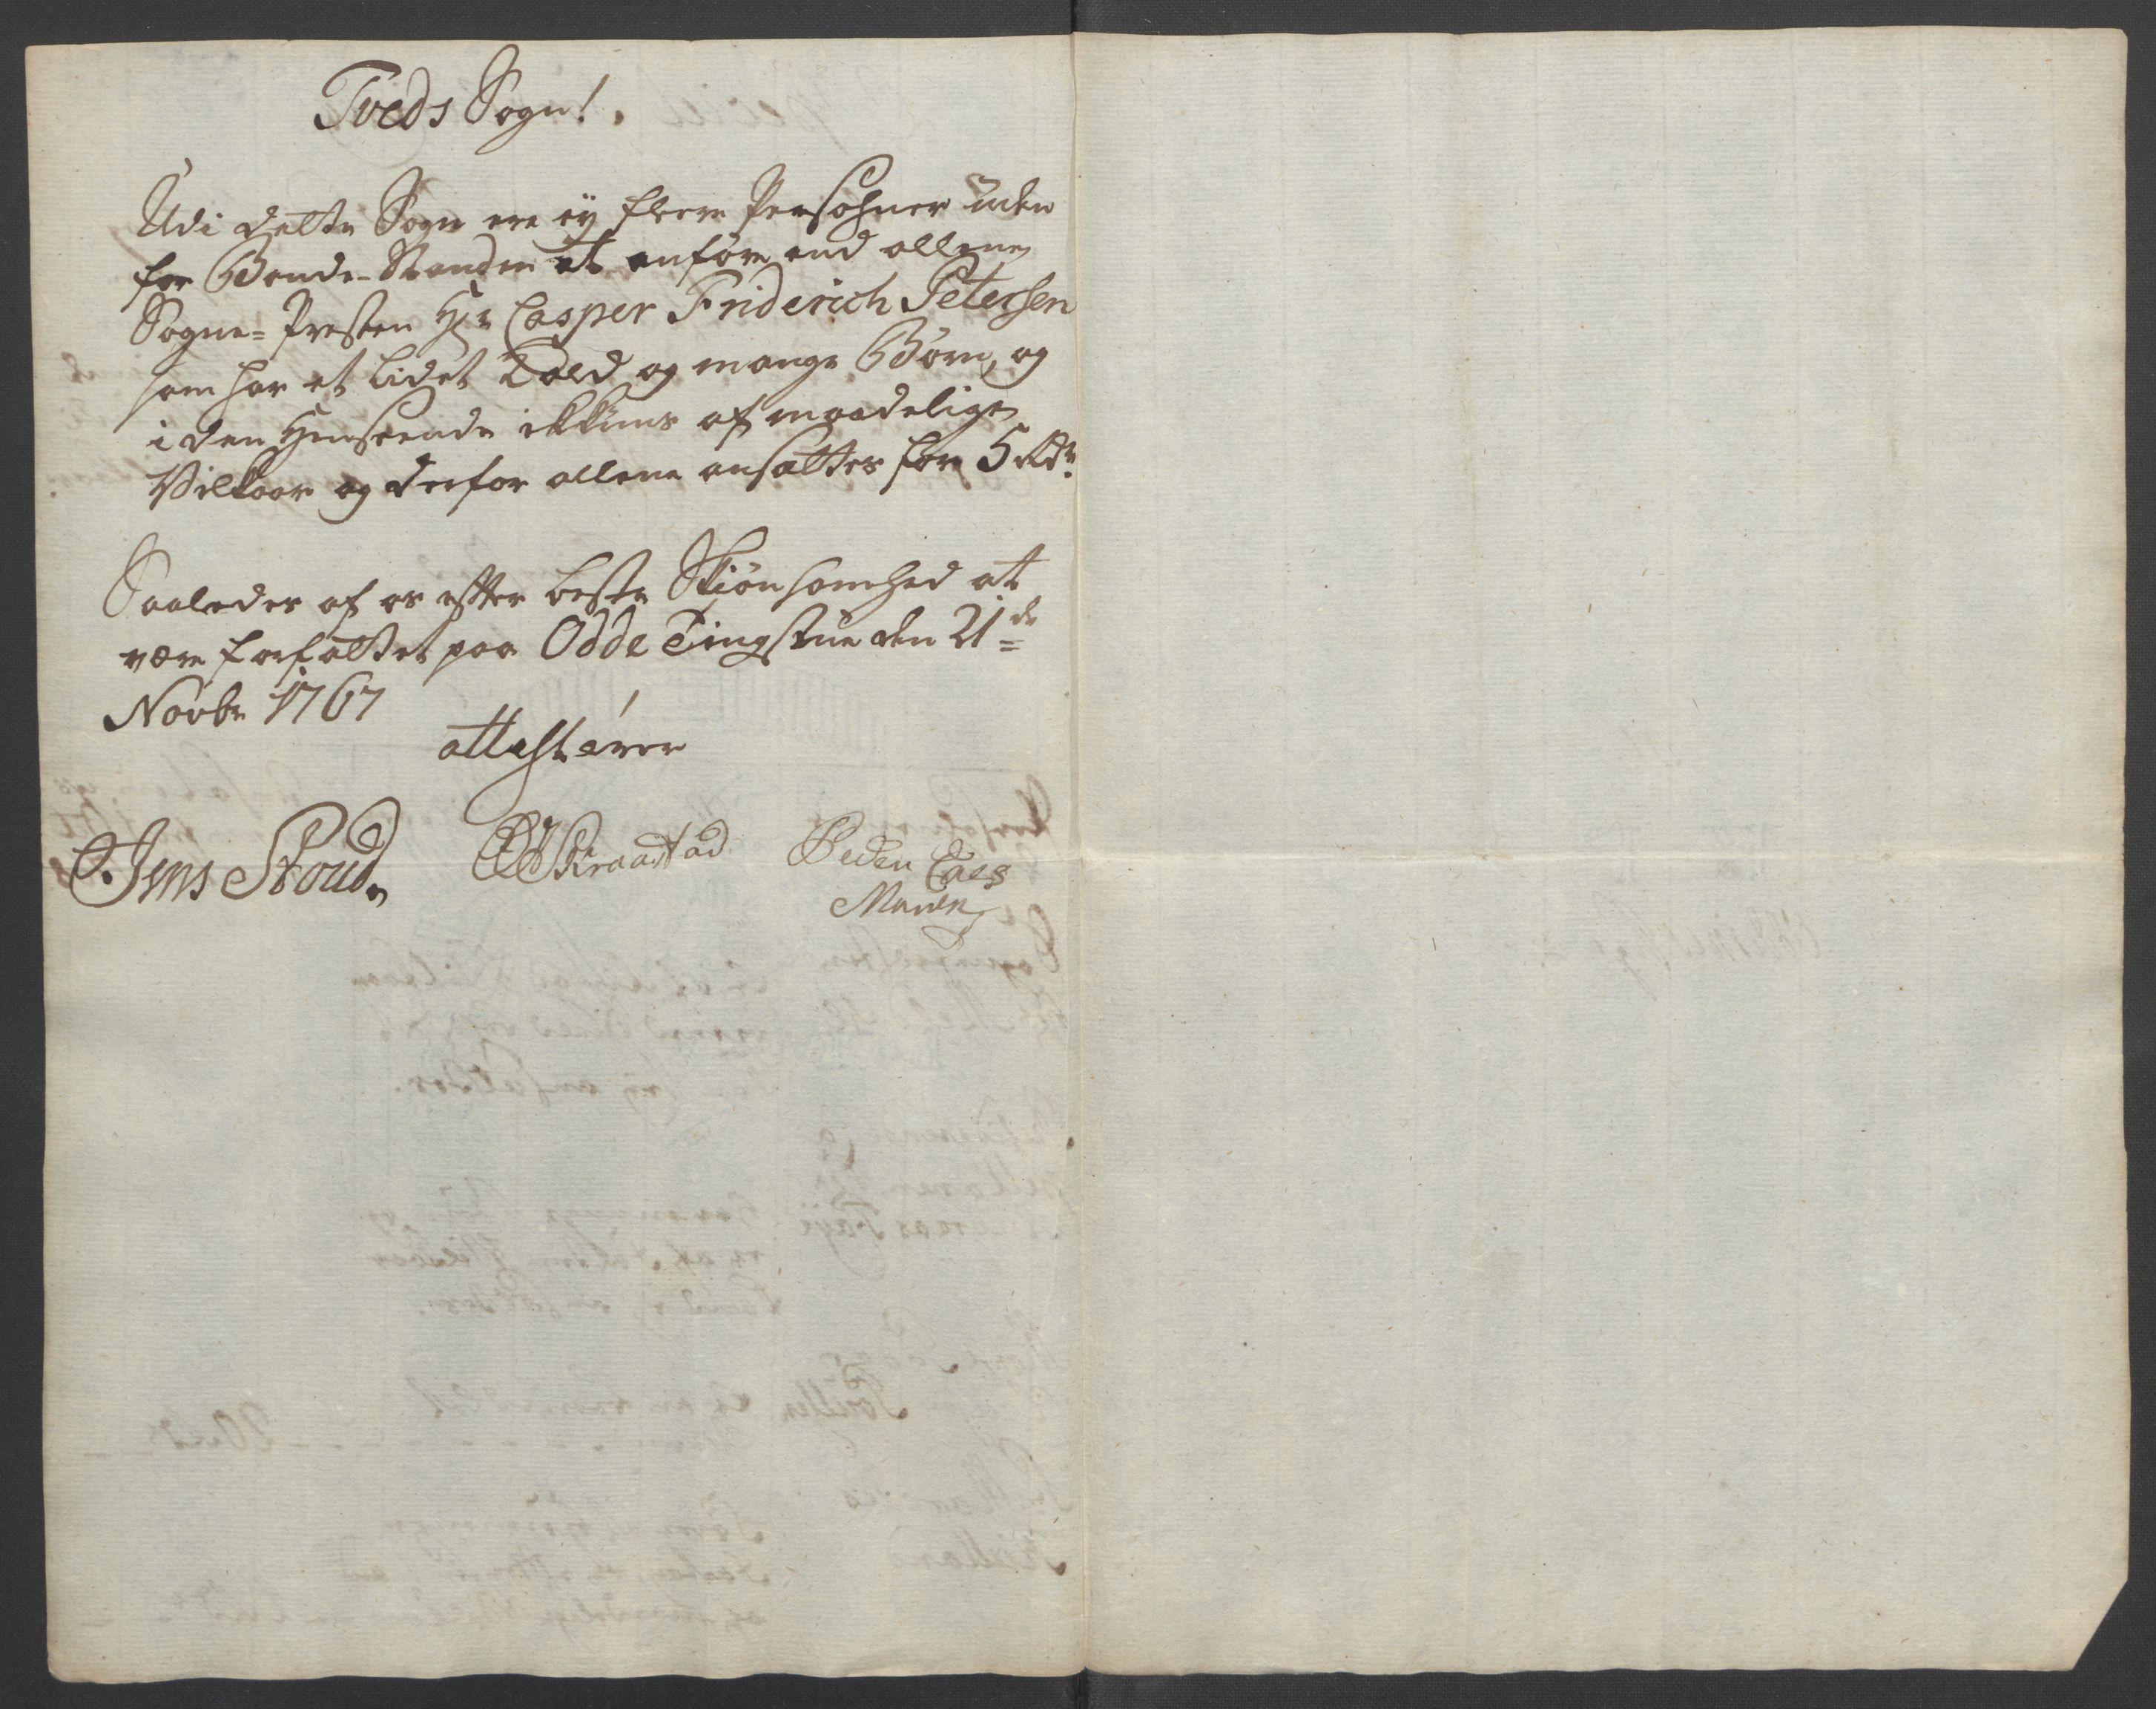 Tveds Sogn!
Udi dette Sogn ere ey fleere Persohner uden
for Bonde-Standen at anføre end allene
Sogne-Presten Hr Casper Friderich Petersen
som har et lidet Kald og mange Børn, og
i den Henseende ikkuns af maadelige
Vilkaar og derfor allene ansættes for 5 Rdr
Saaledes af os efter beste Skiønsomhed at
være forfattet paa Odde Tingstue den 21de
Novbr 1767
attesterer
Jens Stoud
Kraastad Peder